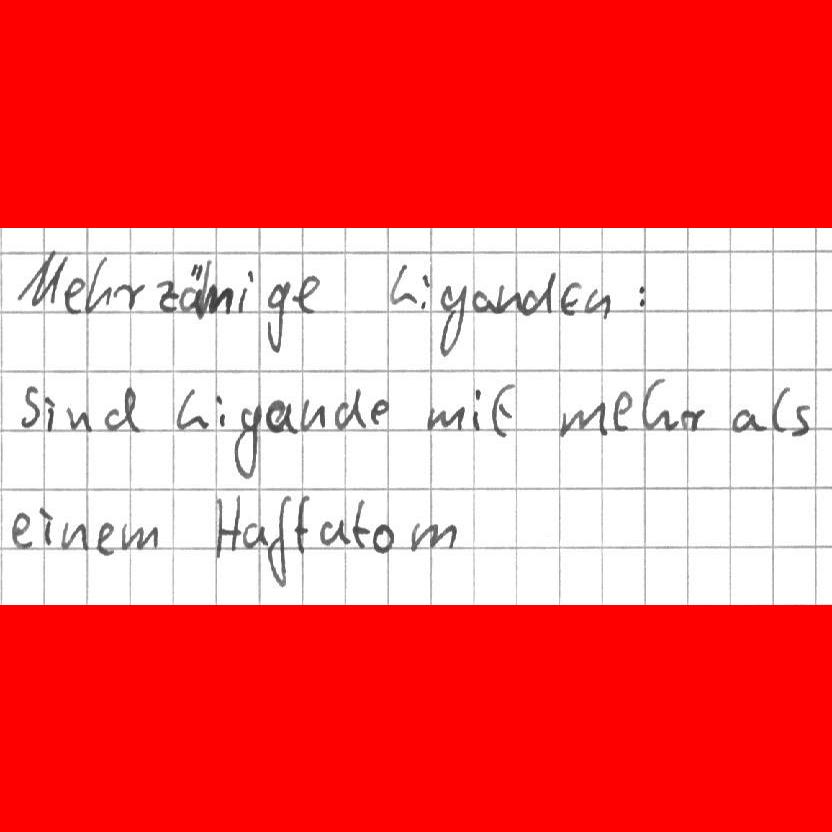 Mehrzähnige Liganden:
Sind Ligande mit mehr als
einem Haftatom